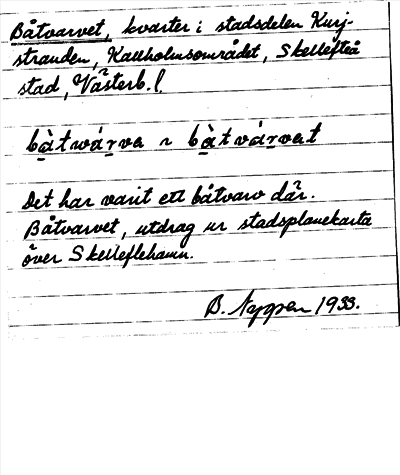 Båtvarvet, kvarter i stadsdelen Kurj-
stranden, Kallholmsområdet, Skellefteå
stad, Västerb. l.
bàtwárve ~ bàtvárvet
Det har varit ett båtvarv där.
Båtvarvet, utdrag ur stadsplanekarta
över Skelleftehamn.
B. Nygren 1933.